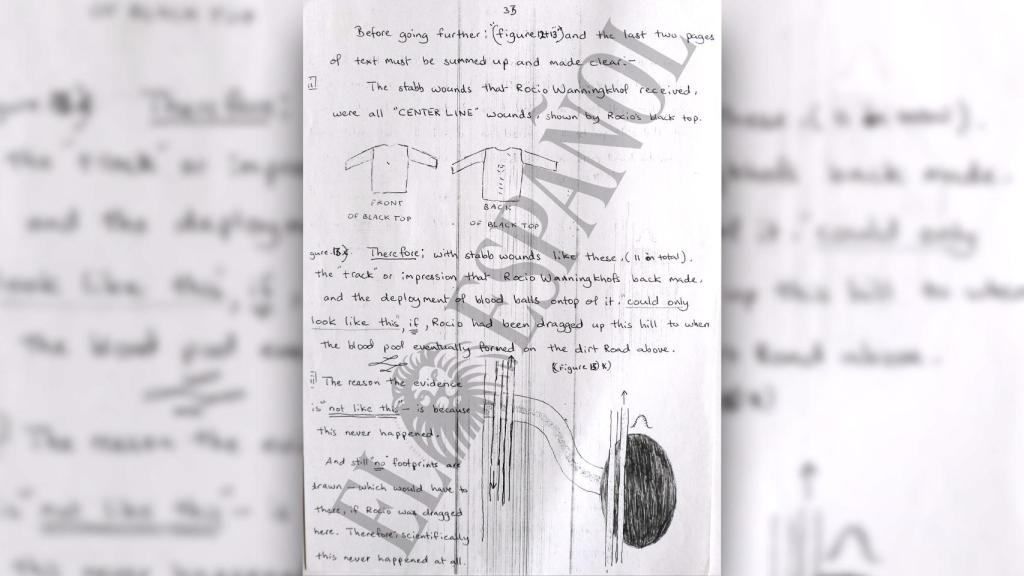 33
Before going further; "(figure 12+13") and the last two pages
of text must be summed up and made clear.-
i] The stabb wounds that Rocio Wanningkhof received,
were all "CENTER LINE" wounds, shown by Rocio's black top.
FRONT
OF BLACK TOP
BACK
OF BLACK TOP
gure. Therefore; with stabb wounds like these, (11 in total).
the "track" or impression that Rocio Wanningkhofs back made,
and the deployment of blood balls ontop of it, "could only
look like this", if, Rocio had been dragged up this hill to when
the blood pool eventually formed on the dirt Road above.
(Figure K)
ii] The reason the evidence
is "not like this" – is because
this never happened.
And still "no" footprints are
drawn – which would have to
there, if Rocio was dragged
here. Therefore, scientifically
this never happened at all.
EL ESPAÑOL